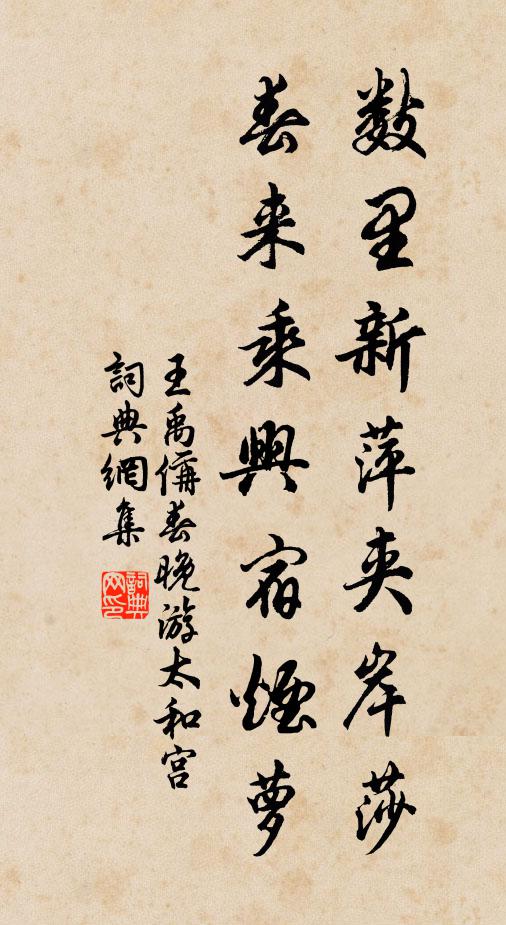 数里新萍夹岸莎
春来乘興宿煙萝
王禹偁春晚游太和宫
詞典網集
詞典网印